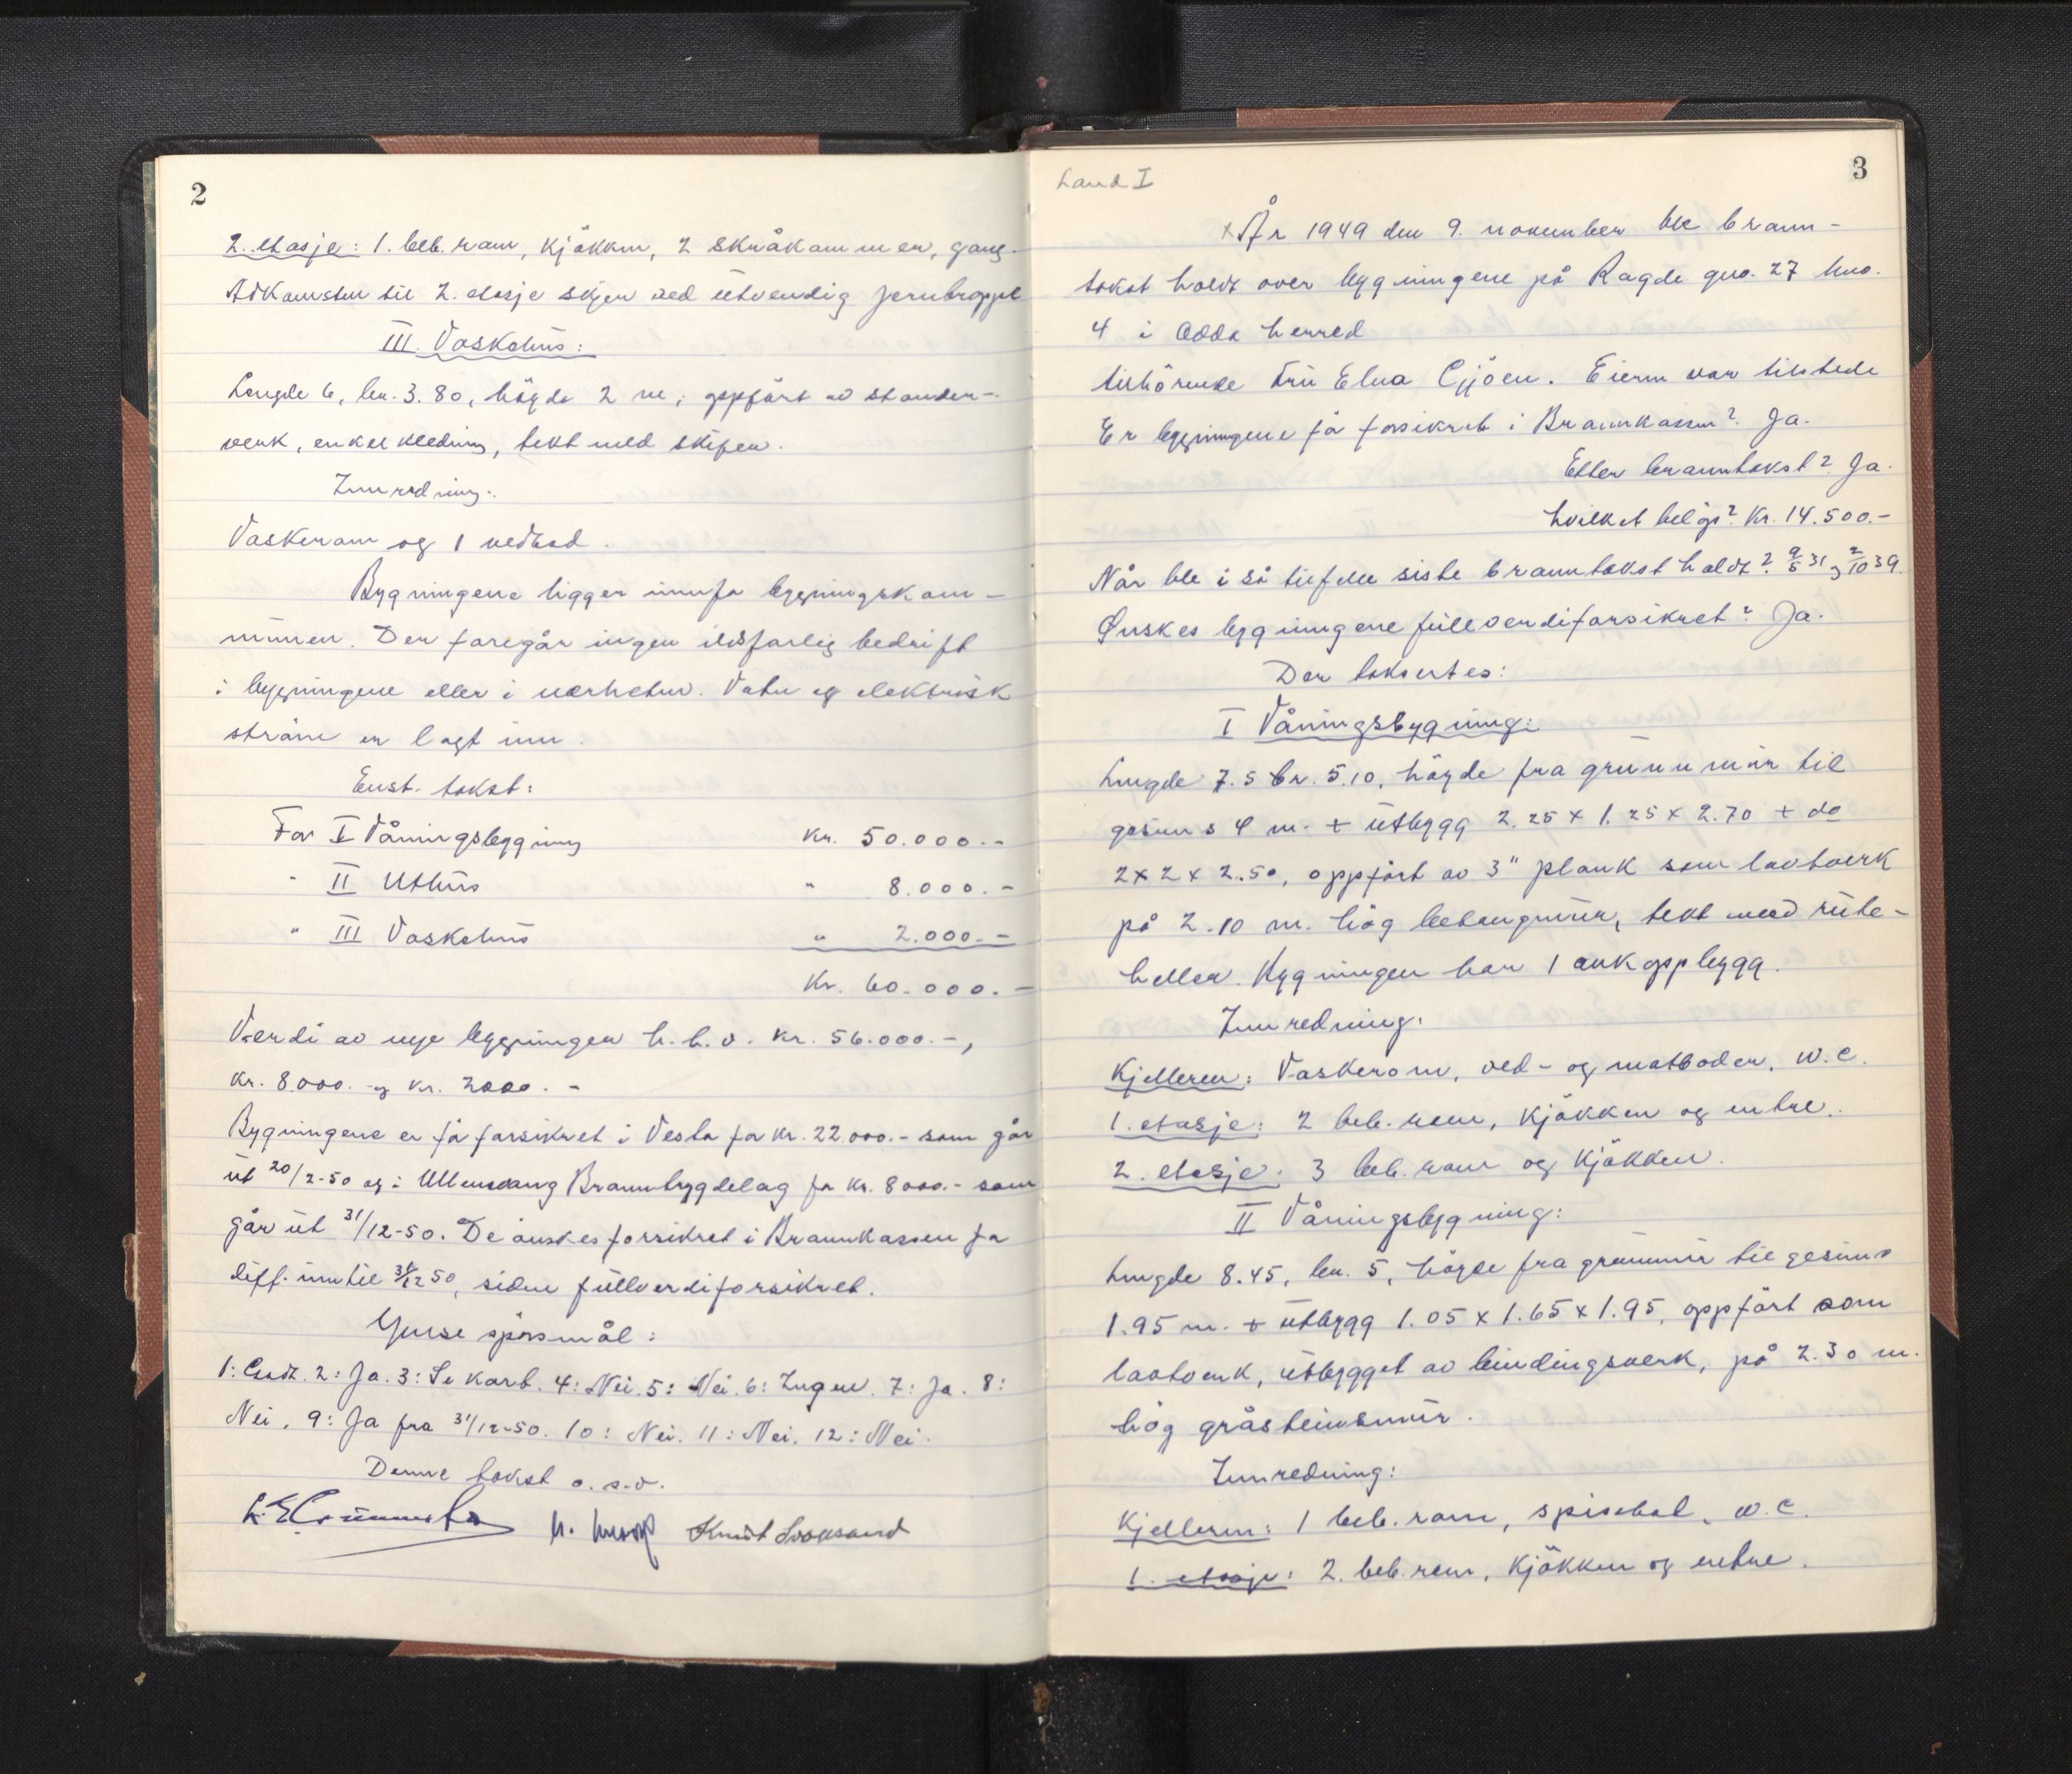 2
2. etasje: 1. beb. rom, kjökken, 2 skråkammer, gang.
Adkomsten til 2. etasje skjer ved utvendig jernbropp
III. Vaskehus:
Lengde 6, br. 3.80, högde 2 m, oppfört av stander-
verk, enkel kledning, tekt med skifer.
Innredning:
Vaskerom og 1 vedbod.
Bygningene ligger innafor bygningskom-
munen. Der foregår ingen ildsfarlig bedrift
i bygningene eller i nærheten. Vatn og elektrisk
ström er lagt inn.
Enst. takst:
For I Våningsbygning kr. 50.000.-
" II Uthus " 8.000.-
" III Vaskehus " 2.000.-
Kr. 60.000.-
Verdi av nye bygningen h.h.v. kr. 56.000.-,
kr. 8.000.- og kr. 2000.-
Bygningene er få forsikret i Vesta for kr. 22.000.- som går
ut 20/2-50 og i Ullensvang Brannbygdelag for kr. 8000.- som
går ut 31/12-50. De önskes forsikret i Brannkassen for
diff. inntil 31/12 50, siden fullverdiforsikret.
Ymse spörsmål:
1: Godt. 2: Ja. 3: Se kart. 4: Nei. 5: Nei. 6: Ingen. 7: Ja. 8:
Nei. 9: Ja fra 31/12-50. 10: Nei. 11: Nei. 12: Nei.
Denne takst o.s.v.
Knut
3
Land I
x År 1949 den 9. november ble brann-
takst holdt over bygningene på Ragde gno. 27 bno.
4 i Odda herred
tilhörende Fru Elna Gjöen. Eieren var tilstede
Er bygningene få forsikret i Brannkassen? Ja.
Etter branntakst? Ja.
Hvilket belöp? Kr. 14.500.-
Når ble i så tilfelle siste branntakst holdt? 9/5 31 og 2/10 39.
Ønskes bygningene fullverdiforsikret? Ja.
Der taksertes:
I Våningsbygning:
Lengde 7.5 br. 5.10, högde fra grunnmur til
gesims 4 m. + utbygg 2.25 x 1.25 x 2.70 + do
2 x 2 x 2.50, oppfört av 3" plank som lavtverk
på 2.10 m. hög betongmur, tekt med rute-
heller. Bygningen har 1 arkoppbygg.
Innredning:
Kjelleren: Vaskerom, ved- og matboder, W.C.
1. etasje: 2 beb. rom, kjökken og entre.
2. etasje: 3 beb. rom og kjökken.
II Våningsbygning:
Lengde 8.45, br. 5, högde fra grunnmur til gesims
1.95 m. + utbygg 1.05 x 1.65 x 1.95, oppfört som
laftverk, utbygget av bindingsverk, på 2.30 m.
hög gråsteinsmur.
Innredning:
Kjelleren: 1 beb. rom, spisebod, W.C.
1. etasje: 2. beb. rom, kjökken og entre.